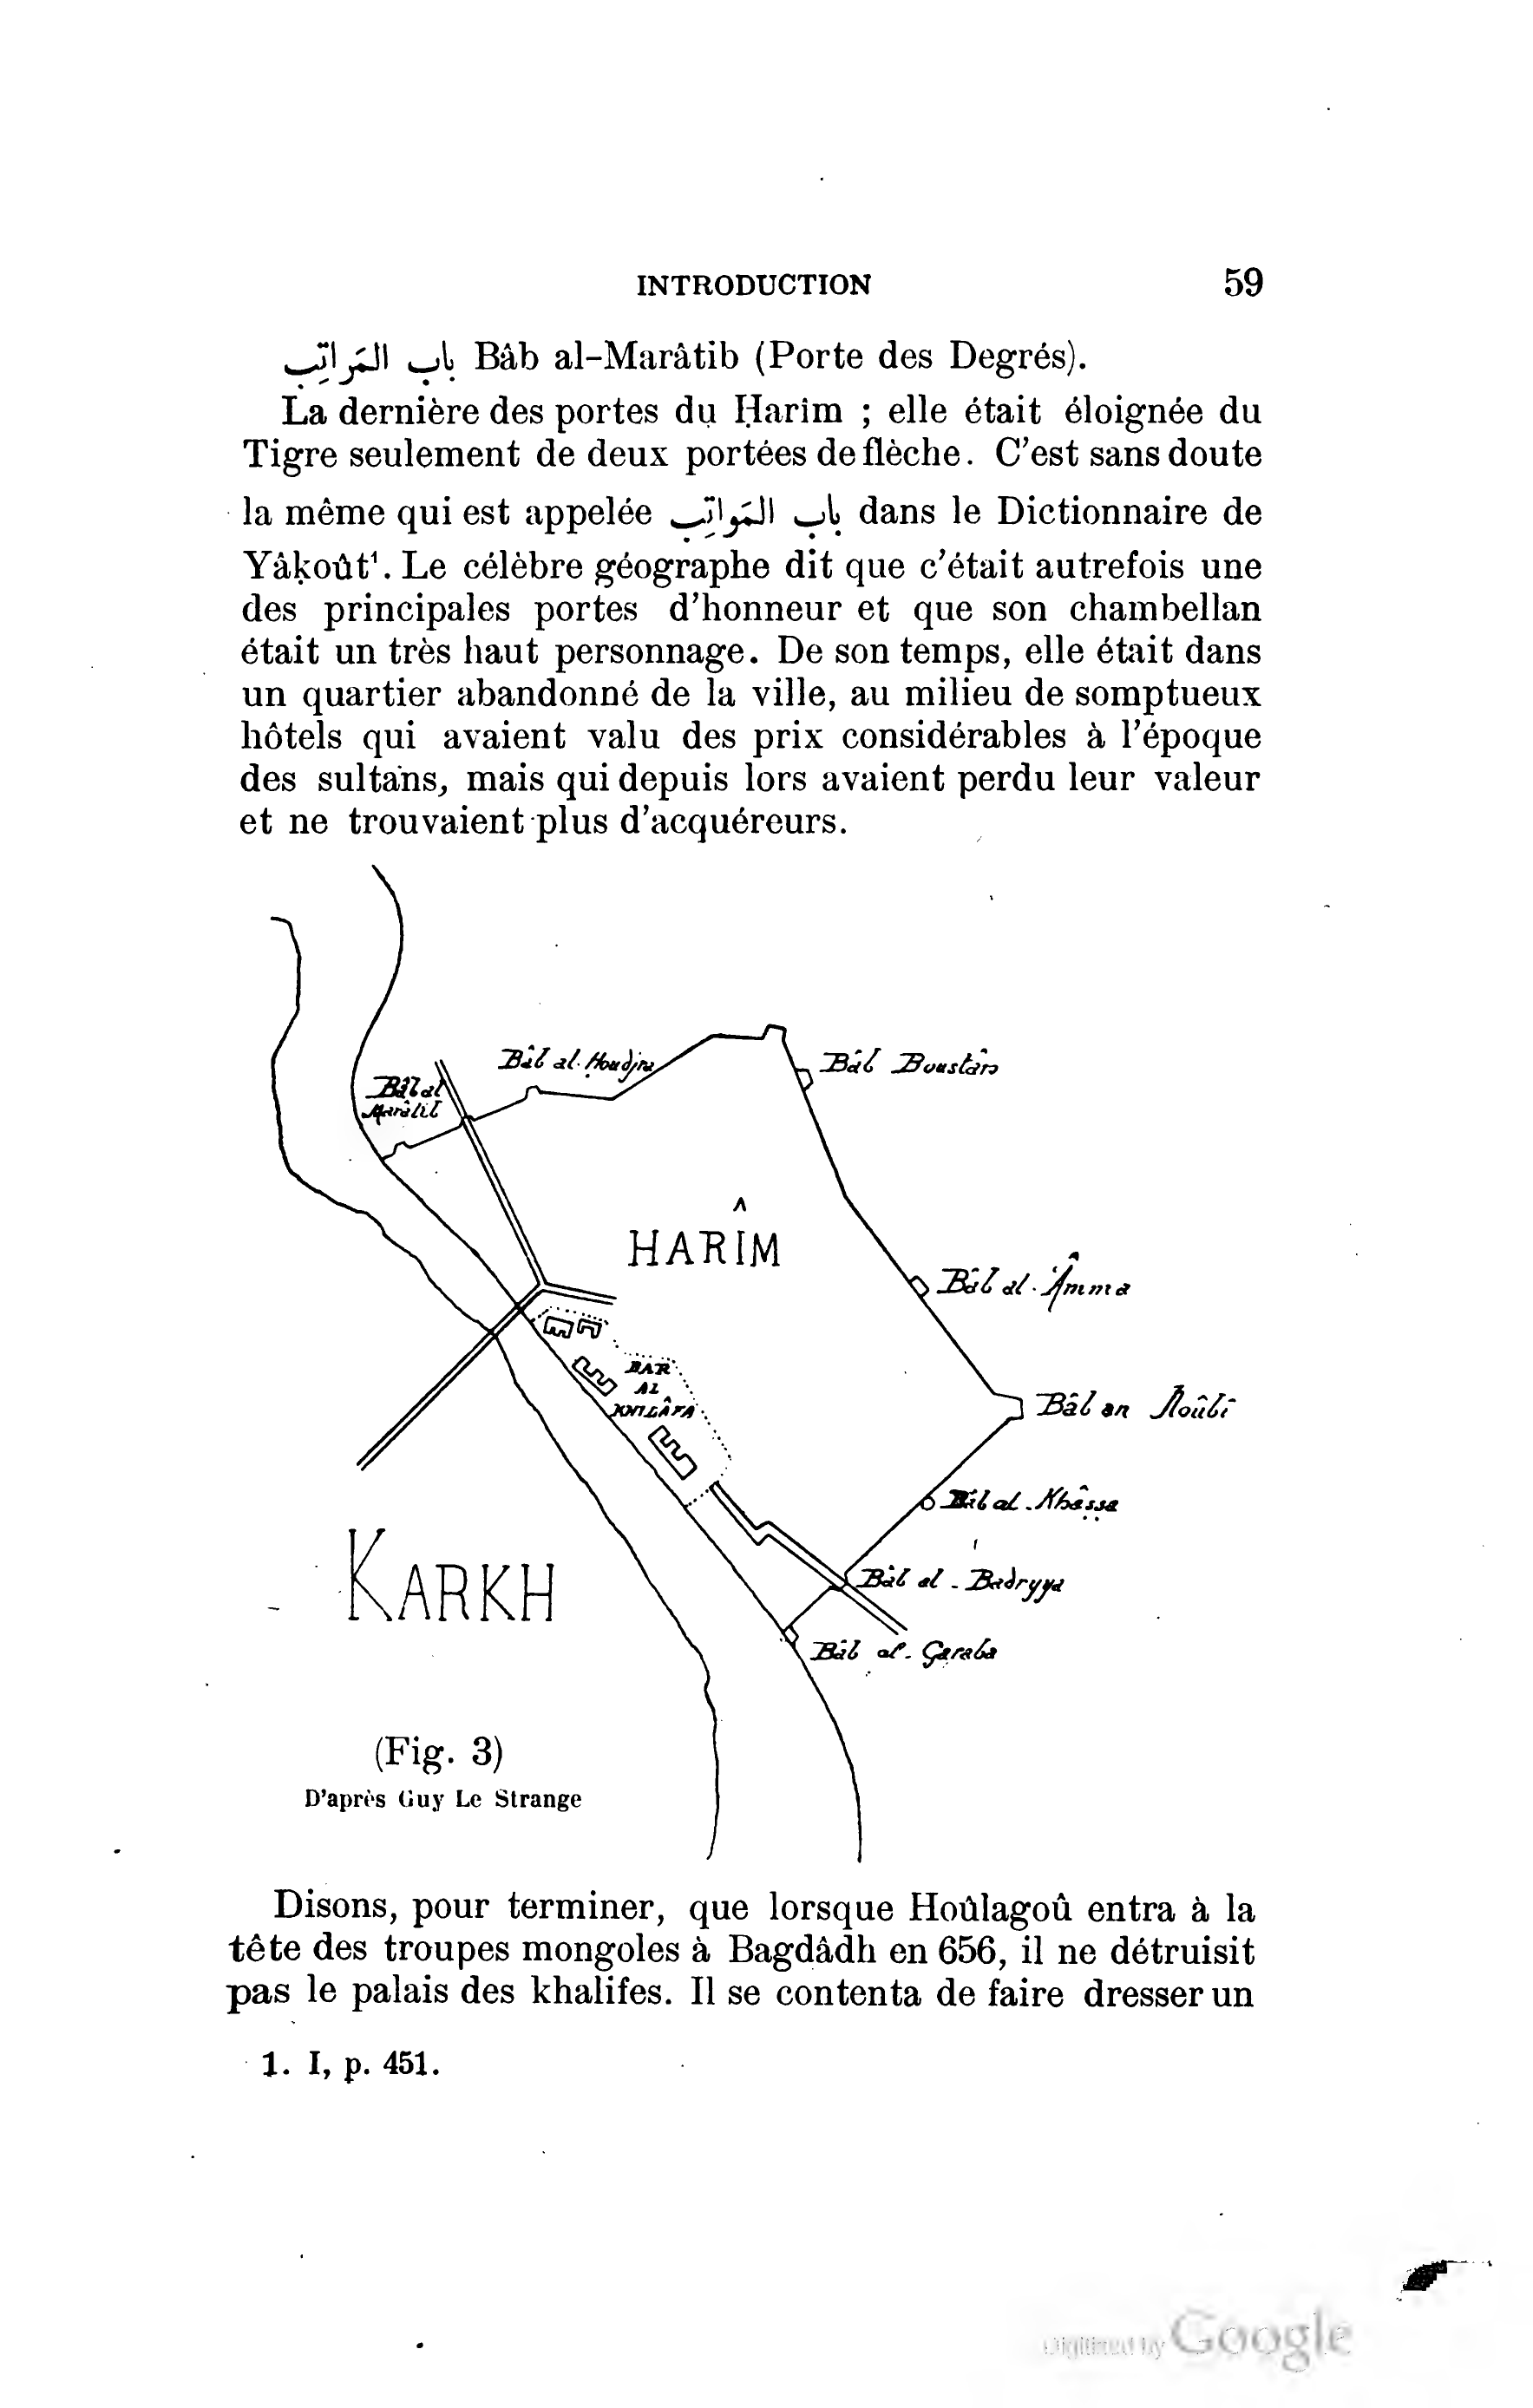 INTRODUCTION 59
باب المَراتِب Bâb al-Marâtib (Porte des Degrés).
La dernière des portes du Ḥarim ; elle était éloignée du
Tigre seulement de deux portées de flèche. C'est sans doute
la même qui est appelée باب المَواتِب dans le Dictionnaire de
Yâḳoût¹. Le célèbre géographe dit que c'était autrefois une
des principales portes d'honneur et que son chambellan
était un très haut personnage. De son temps, elle était dans
un quartier abandonné de la ville, au milieu de somptueux
hôtels qui avaient valu des prix considérables à l'époque
des sultans, mais qui depuis lors avaient perdu leur valeur
et ne trouvaient plus d'acquéreurs.
Bâb al-Houdjra
Bâb Boustân
Bâb al
Marâtib
HARÎM
Bâb al-'Âmma
DAR
AL
KHILÂFA
Bâb an Noûbî
Bâb al-Khâṣṣa
KARKH
Bâb al-Badryya
Bâb al-Garaba
(Fig. 3)
D'après Guy Le Strange
Disons, pour terminer, que lorsque Hoûlagoû entra à la
tête des troupes mongoles à Bagdâdh en 656, il ne détruisit
pas le palais des khalifes. Il se contenta de faire dresser un
1. I, p. 451.
Digitized by Google